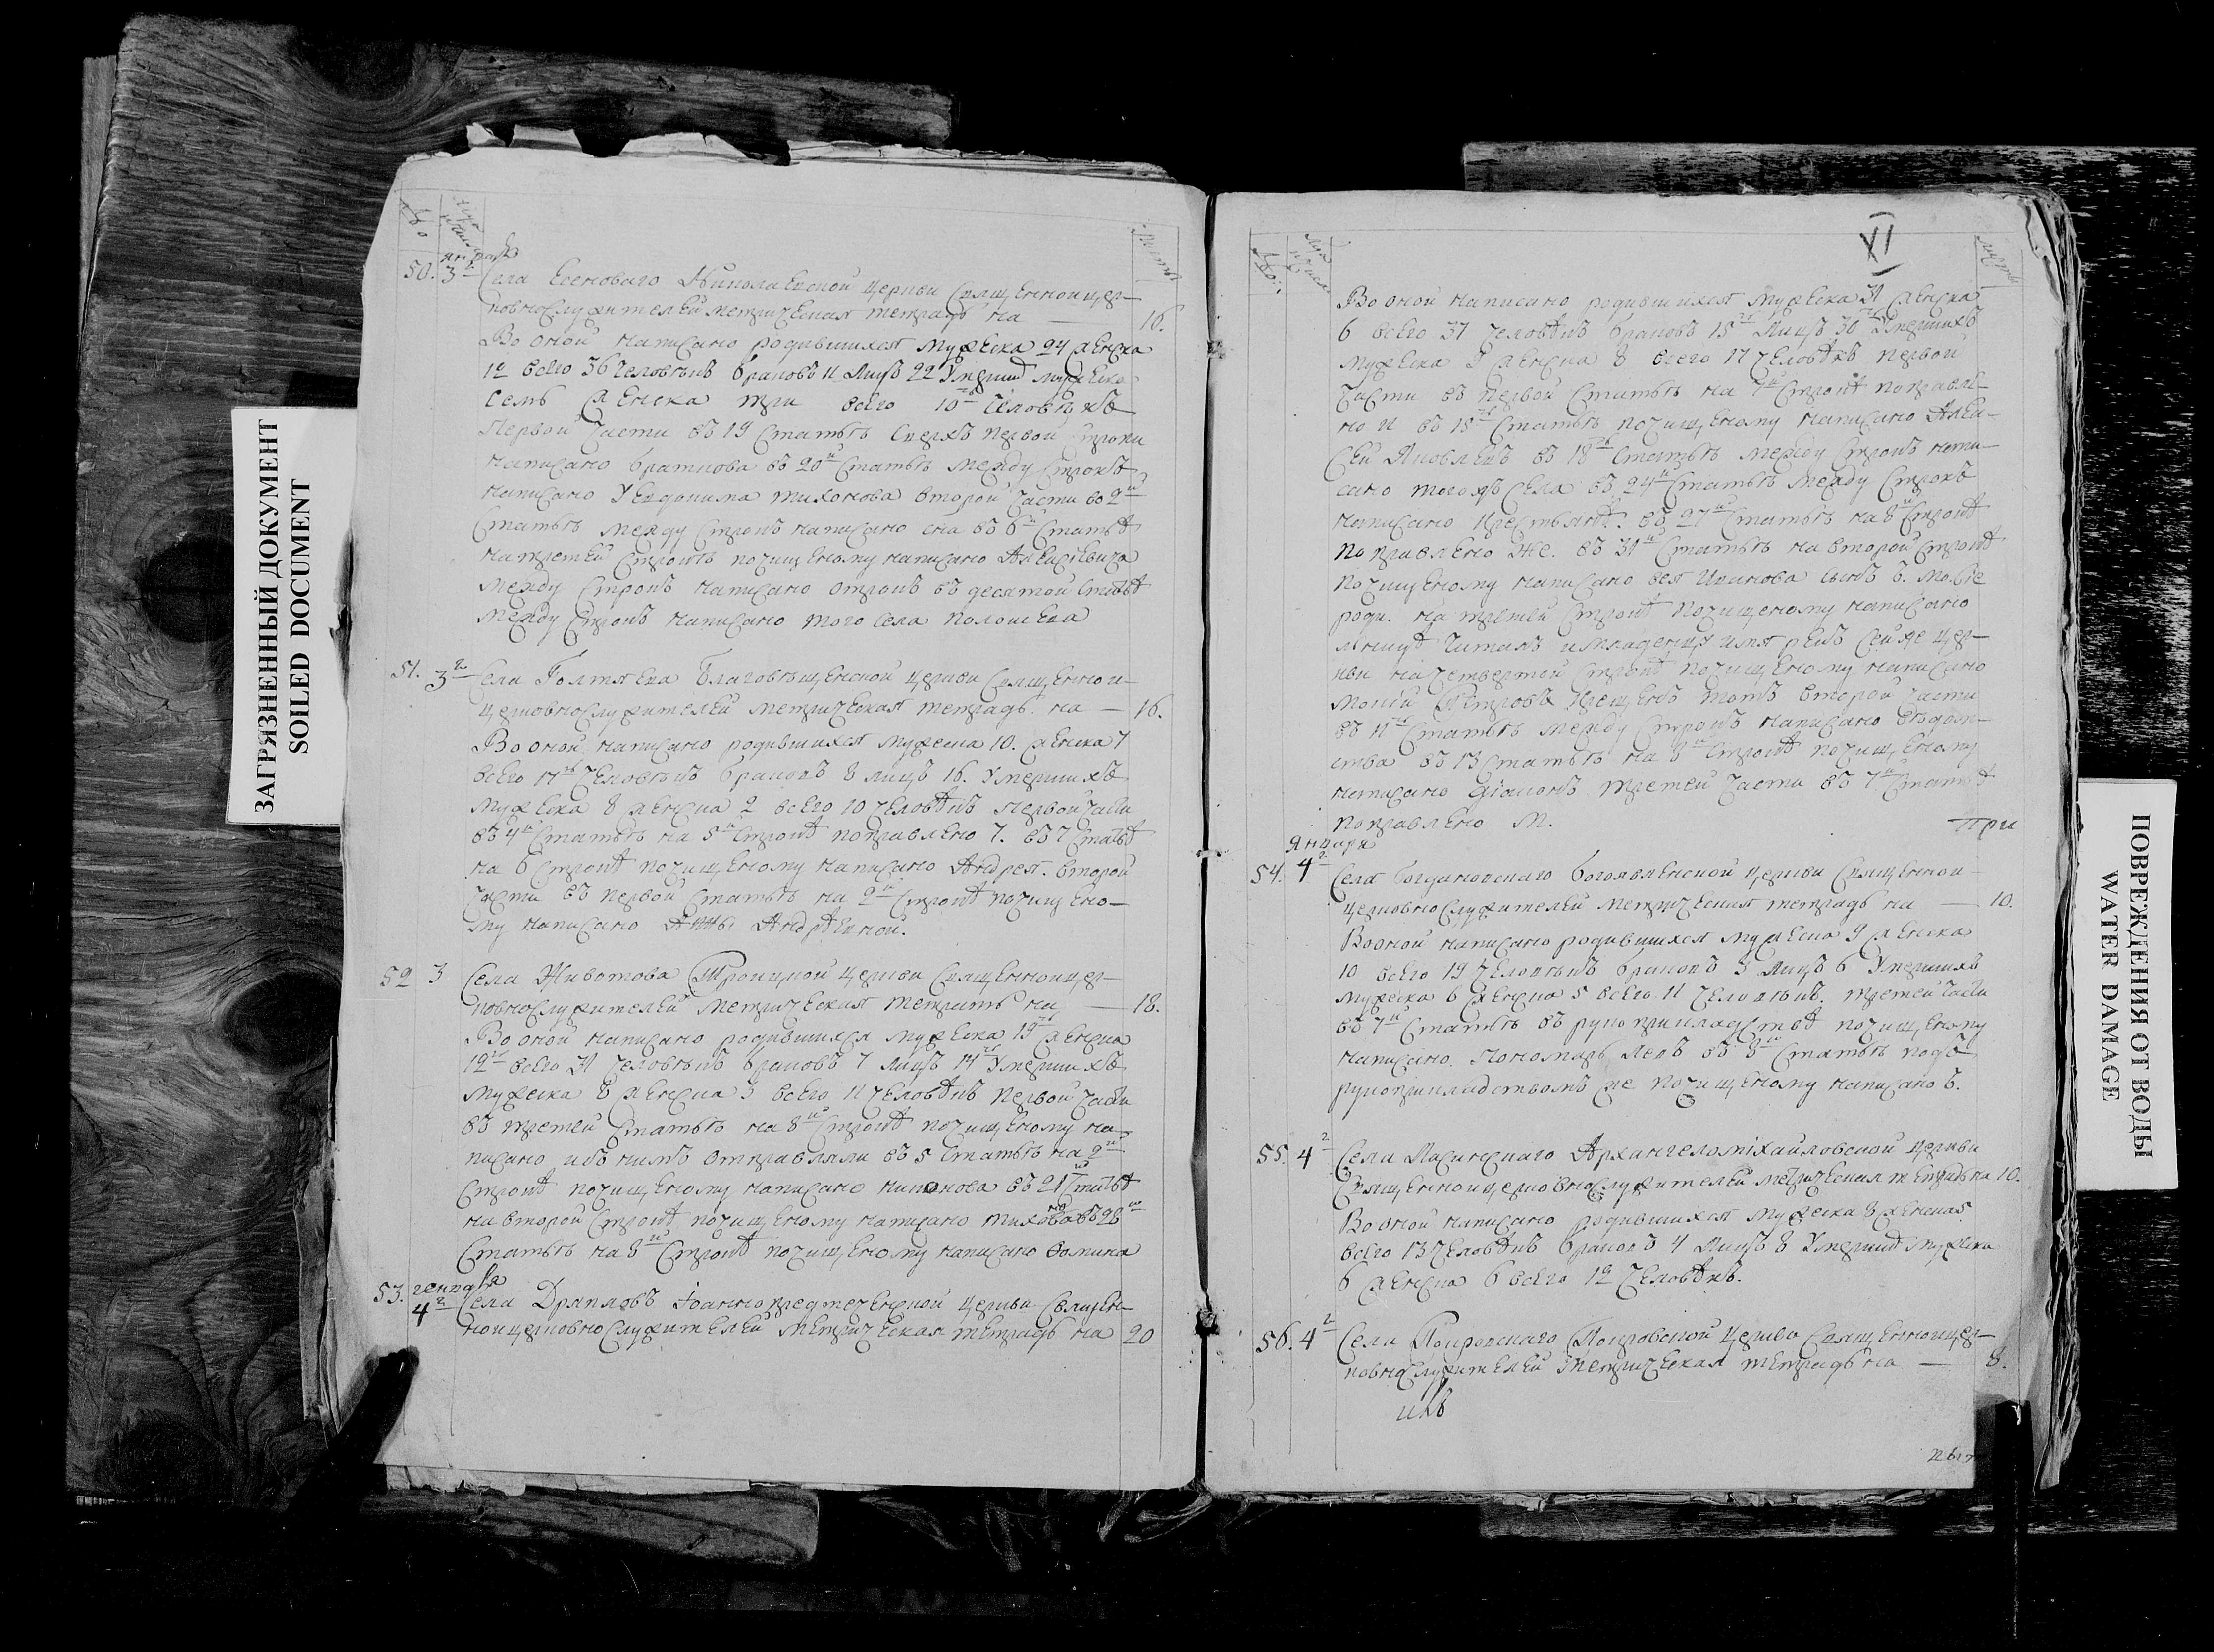 ЗАГРЯЗНЕННЫЙ ДОКУМЕНТ
SOILED DOCUMENT
№
января
листы
50. 3го Села Ясеноваго Николаевской церкви священноцер-
ковнослужителей метрическая тетрадь на — 16.
Во оной написано родившихся мужеска 24 женска
12 всего 36 человекъ браковъ 11 лицъ 22 умерш мужеска
семь женска три всего 10ть человекъ
первой части въ 19 статьѣ сверхъ первой строки
написано братнова въ 20й статьѣ между строкъ
написано Уевдокима Тихонова второй части во 2й
статьѣ между строкъ написано она въ 6й статьѣ
натретей строкѣ почищеному написано Алексіевича
между строкъ написано отрокъ въ десятой статьѣ
между строкъ написано того села
51. 3го Села Голтяева Благовѣщенской церкви священнои-
церковнослужителей метрическая тетрадь на — 16.
Во оной написано родившихся мужеска 10. женска 7
всего 17ть человекъ браковъ 8 лицъ 16. умершихъ
мужеска 8 женска 2 всего 10 человѣкъ первой части
въ 4й статьѣ на 5й строкѣ поправлено 7. въ 7 статьѣ
на 6 строкѣ почищеному написано Андрея. второй
части въ первой статьѣ на 2й строкѣ почищено-
му написано Анны Андрѣевной.
52 3 Села Животова Троицкой церкви священноицер-
ковнослужителей метрическая тетрать на — 18.
Во оной написано родившихся мужеска 19ть женска
12ть всего 31 человекъ браковъ 7 лицъ 14ть умершихъ
мужеска 8 женска 3 всего 11 человѣкъ первой части
въ третей статьѣ на 8й строкѣ почищеному на-
писано ибъ нимъ отправляли въ 5 статьѣ на 2й
строкѣ почищеному написано никонова въ 21й статьѣ
на второй строкѣ почищеному написано въ 28й
статьѣ на 8й строкѣ почищеному написано Фомина
53. генваря
4го Села Дряпловъ Іоаннопредтеченской церкви священ-
ноицерковнослужителей метрическая тетрадь на 20
XI
№
листы
Во оной написано родившихся мужеска 31 женска
6 всего 37 человѣкъ браковъ 15ть лицъ 30ть умершихъ
мужеска 9 женска 8 всего 17 человѣкъ первой
части въ первой статьѣ на 7й строкѣ поправле-
но и въ 15ть статьѣ почищеному написано Алек-
сей Яковлевъ въ 18ть статьѣ между строкъ напи-
сано тогожъ села въ 24й статьѣ между строкъ
написано крестьянѣ. въ 27й статьѣ на 8й строкѣ
поправлено же. въ 31й статьѣ на второй строкѣ
почищеному написано Иванова сынъ
роди. на третей строкѣ почищеному написано
читанъ имладенцу имя речъ сейже цер-
кви на четвертой строкѣ почищеному написано
Петровъ крещенъ тотъ второй части
въ 11ть статьѣ между строкъ написано
ства въ 13 статьѣ на 8й строкѣ почищеному
написано діаконъ третей части въ 7й статьѣ
поправлено м.
при
января
54. 4го Села Богдановскаго Богоявленской церкви священнои-
церковнослужителей метрическая тетрадь на — 10.
Во оной написано родившихся мужеска 9 женска
10 всего 19 человѣкъ браковъ 3 лицъ 6 умершихъ
мужеска 6 женска 5 всего 11 человѣкъ. третей части
въ 7й статьѣ въ рукоприкладствѣ почищеному
написано. пономарь левъ въ 8й статьѣ подъ
рукоприкладствомъ же почищеному написано ъ.
55. 4го Села Архангеломіхайловской церкви
священноицерковнослужителей метрическая тетрадь на 10.
Во оной написано родившихся мужеска 8 женска 5
всего 13 человѣкъ браковъ 4 лицъ 8 умерших мужеска
6 женска 6 всего 12 человѣкъ.
56. 4го Села Покровскаго Покровской церкви священноицер-
ковнослужителей метрическая тетрадь на — 8.
ПОВРЕЖДЕНИЯ ОТ ВОДЫ
WATER DAMAGE